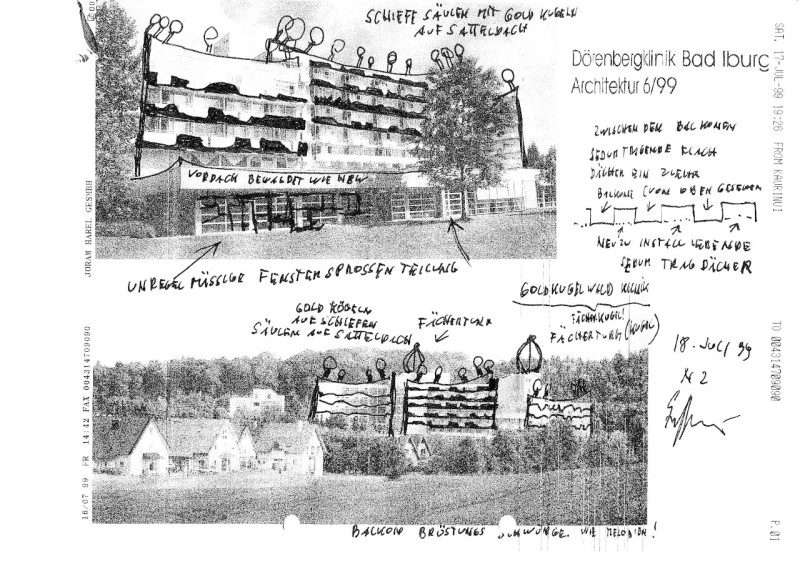 SCHIEFE SÄULEN MIT GOLD KUGELN
AUF SATTELDACH
Dörenbergklinik Bad Iburg
Architektur 6/99
ZWISCHEN DEN BALKONEN
SEDUM TRAGENDE FLACH
DÄCHER EIN ZWEI
BALKONE (VON OBEN GESEHEN
NEU ZU INSTALLIERENDE
SEDUM TRAG DÄCHER
VORDACH BEWALDET WIE NEU
UNREGELMÄSSIGE FENSTERSPROSSEN TEILUNG
GOLDKUGELWALD KLINIK
GOLD KUGELN
AUF SCHIEFEN
SÄULEN AUF SATTELDACH
FÄCHERTURM
FÄCHERKUGEL!
FÄCHERTURM (KUGEL)
18. JULI 99
N 2
BALKON BRÜSTUNGS SCHWÜNGE WIE MELODIEN!
JORAM HAREL GESMBH
16/07 99 FR 14:42 FAX 004314709090
SAT, 17-JUL-99 19:26 FROM KAURINUI
TO 004314709090
P.01